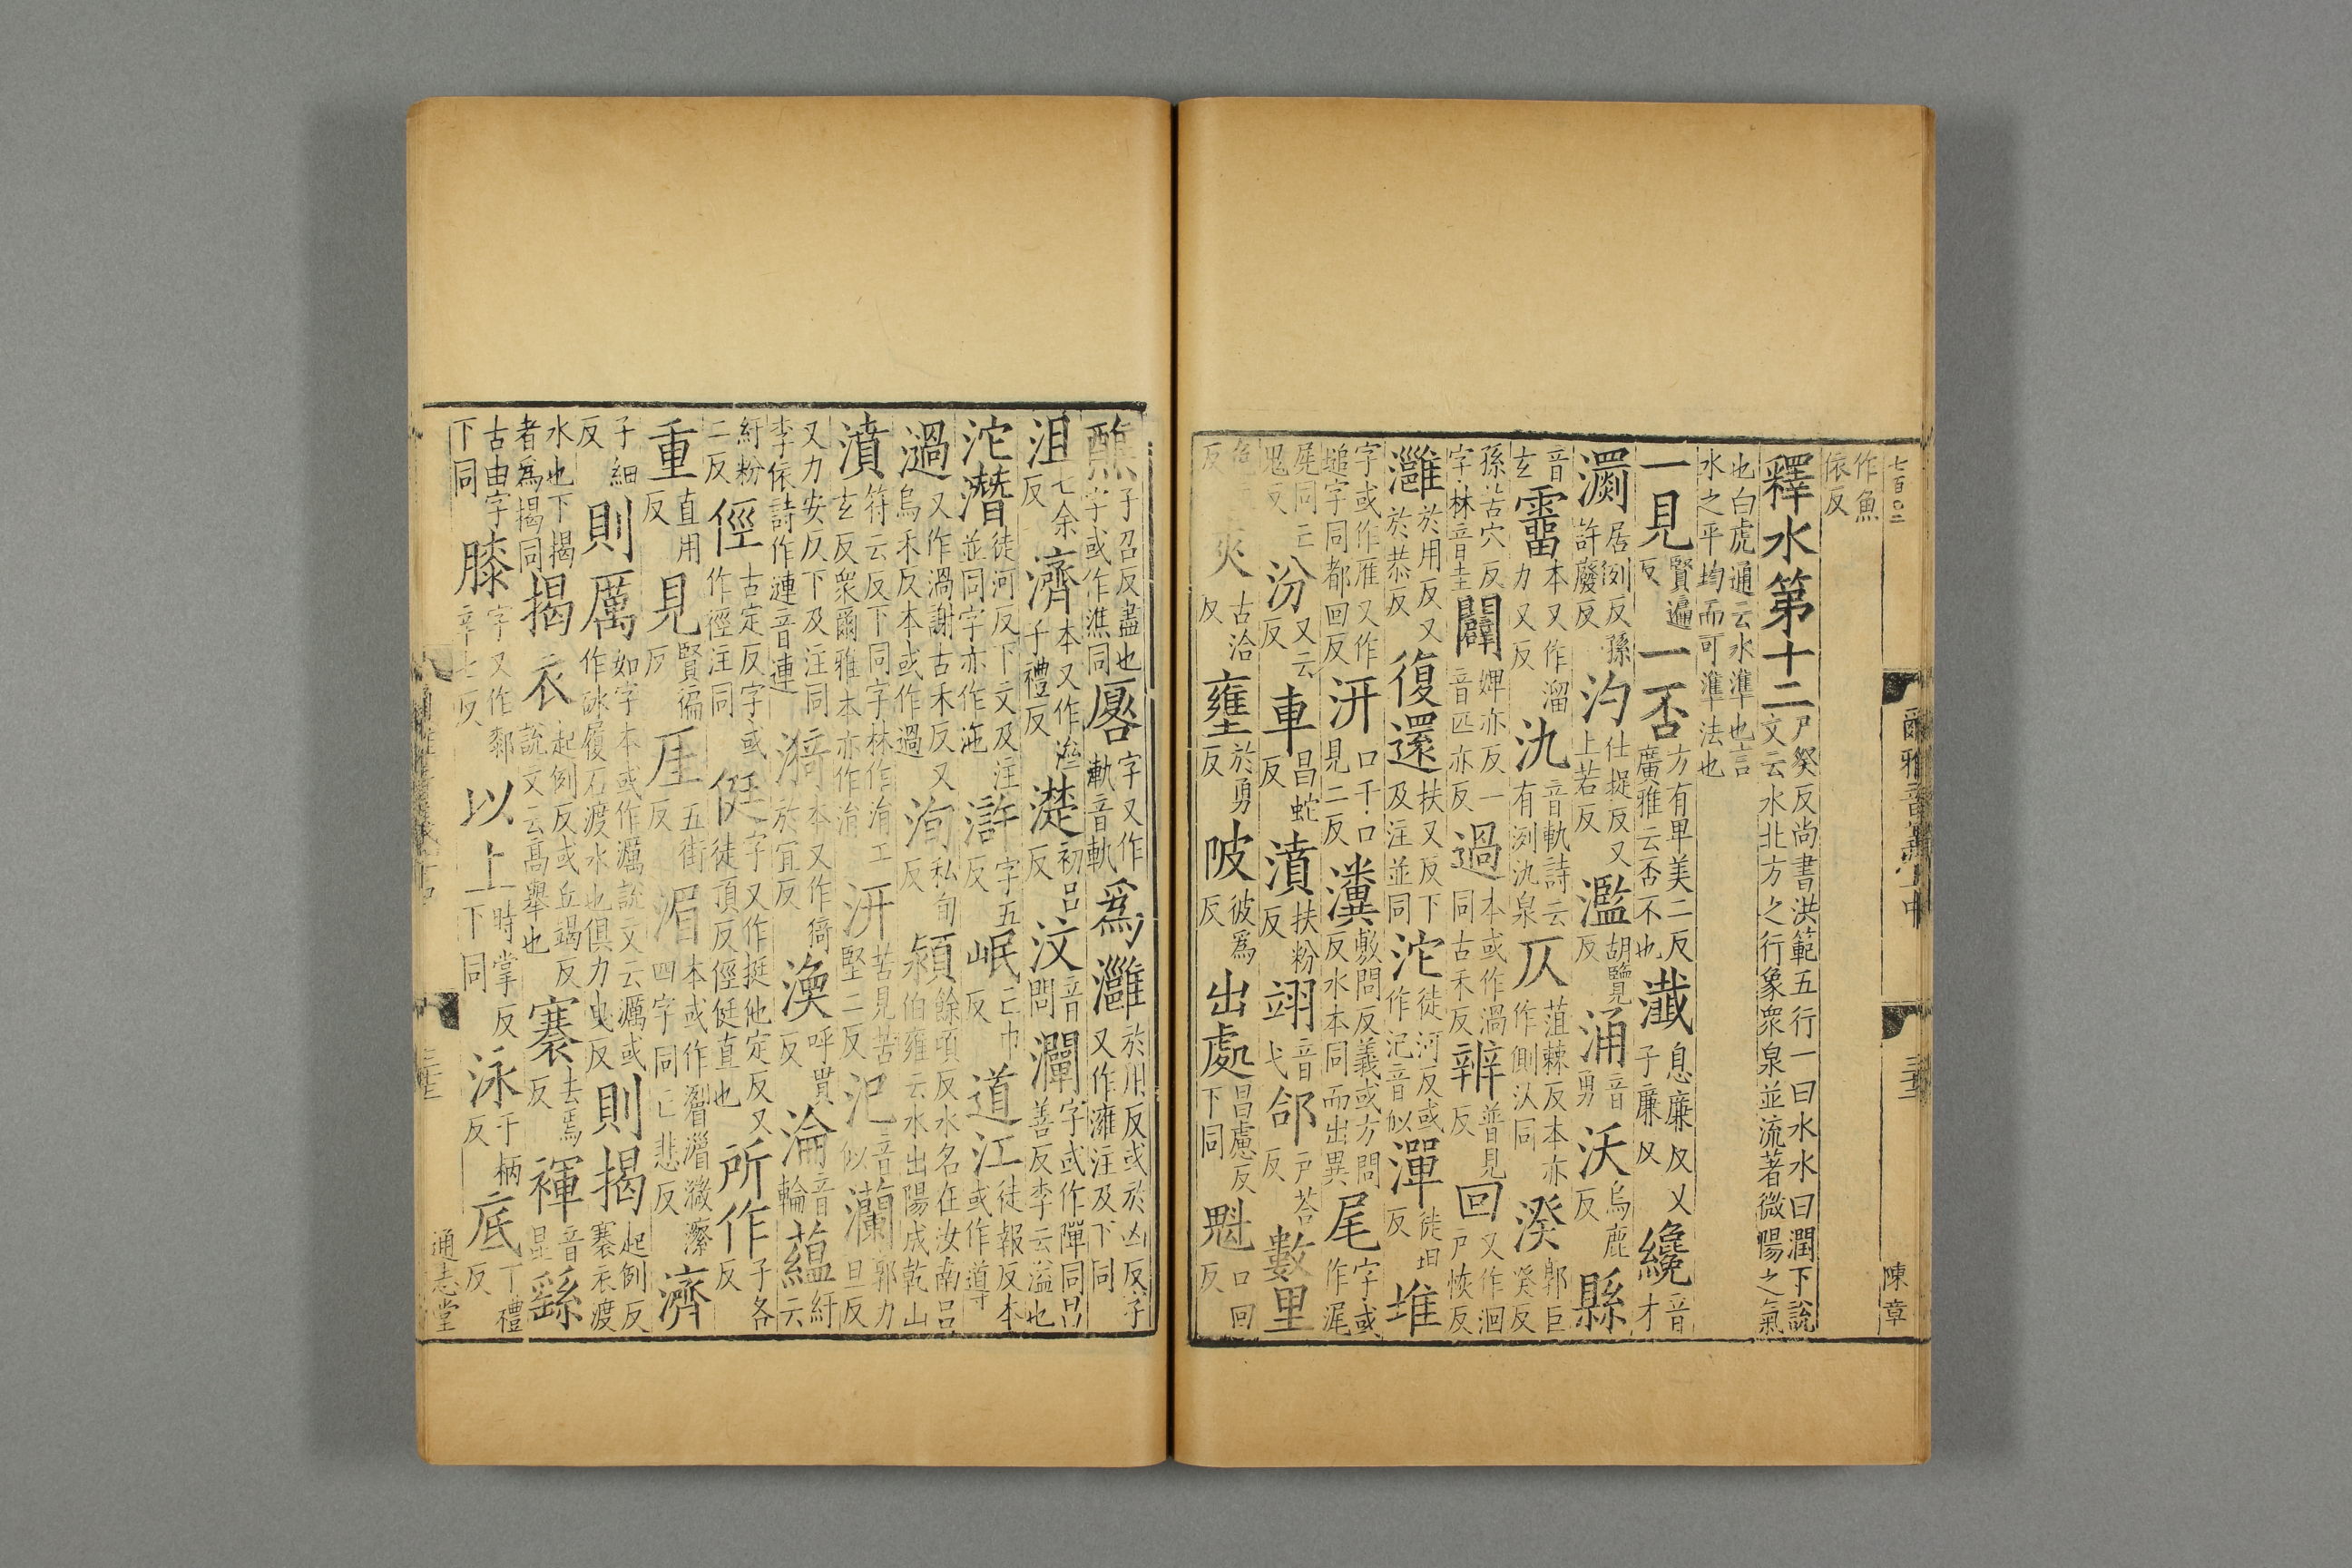 作魚依反
釋水第十二尸癸反尚書洪範五行一曰水水曰潤下說文云水北方之行象衆泉並流著微陽之氣
也白虎通云水準也言水之平均而可準法也
一見賢遍反一否方有卑美二反廣雅云否不也瀸息廉反又子廉反纔音才
瀱居例反孫許廢反汋仕捉反又上若反濫胡覽反涌音勇沃烏鹿反縣
音玄霤本又作溜力又反氿音軌詩云有洌氿泉仄菹棘反本亦作側汄同湀郭巨癸反
孫苦穴反字林音圭闢婢亦反一音匹亦反過本或作渦同古禾反辨普見反回又作洄戶恢反
灉於用反又於恭反復還扶又反下及注並同沱徒河反或作汜音似潬徒坦反堆
字或作雁又作塠字同都回反汧口千口見二反瀵敷問反義或方問反水本同而出異尾字或作浘
䰟反汾又云反車昌蛇反濆扶粉反翊音弋郃戶荅反數里
夾古洽反壅於勇反陂彼爲反出處昌慮反下同魁口回反
子召反盡也字或作潐同厬字又作軌音軌爲灉於用反或於凶反字又作澭注及下同
沮七余反濟本又作泲子禮反濋初呂反汶音問灛字或作闡同呂善反李云溢也
沱潛徒河反下文及注並同字亦作沲滸字五反岷亡巾反道江徒報反本或作導
過又作渦謝古禾反又烏禾反本或作過洵私旬反潁餘頃反水名在汝南呂忱伯雍云水出陽成乾山
濆符云反下同字林作涓工玄反衆爾雅本亦作涓汧苦見苦堅二反汜音似瀾郭力旦反
又力安反下及注同李依詩作漣音連漪本又作猗於宜反渙呼貫反淪音輪蘊紆云
紆粉二反徑古定反字或作徑注同侹字又作挺他定反又徒頂反徑侹直也所作子各反
重直用反見賢徧反厓五街反湄本或作濟
子細反則厲如字本或作濿說文云濿或作砅履石渡水也俱力曳反則揭起例反褰衣渡
水也下揭者爲揭同揭衣起例反或丘竭反說文云高舉也褰去焉反褌音昆繇
古由字膝字又作𦡀辛七反以上時掌反下同泳于柄反底丁禮反
下同
通志堂
陳章